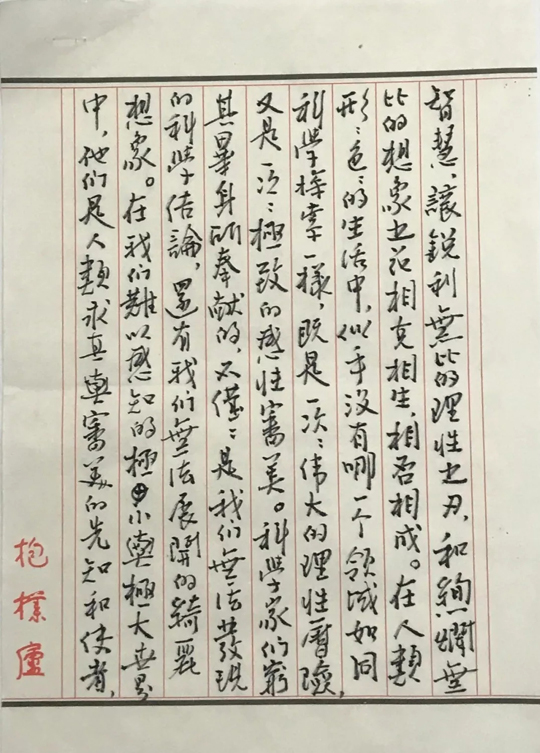 智慧,讓銳利無比的理性之刃,和絢爛無
比的想象之花相克相生,相否相成。在人類
形〻色〻的生活中,似乎沒有哪一个領域如同
科學探索一樣,既是一次〻伟大的理性曆險,
又是一次〻極致的感性審美。科學家們窮
其畢身所奉献的,不僅〻是我們無法發現
的科學结論,還有我們無法展開的綺麗
想象。在我們難以感知的極小與極大世界
中,他們是人類求真與審美的先知和使者,
抱樸廬